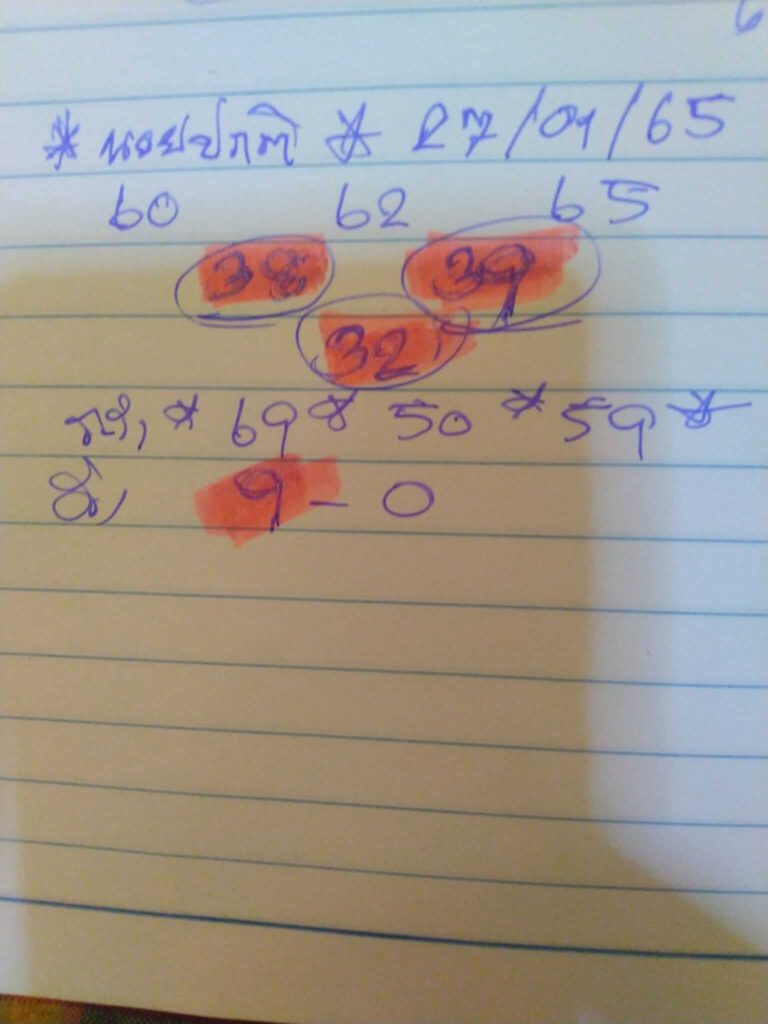 6
* นอยปกติ * 27/01/65
60 62 65
38 39
32
* 69 * 50 * 59 *
9 - 0